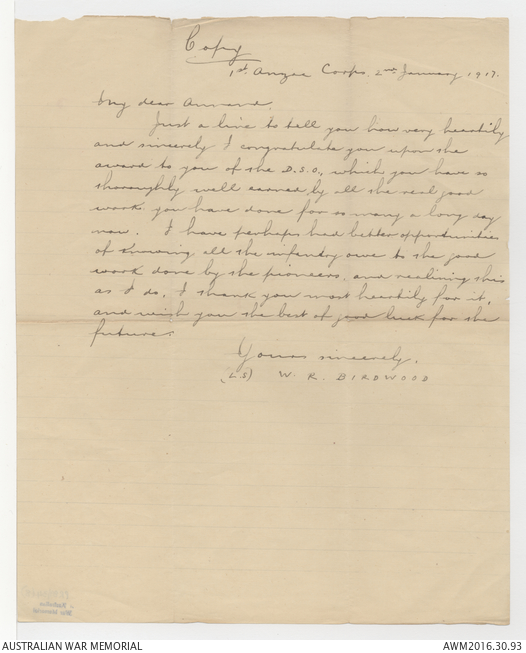 Copy
1st. Anzac Corps, 2nd January 1917.
My dear Annand.
Just a line to tell you how very heartily
and sincerely I congratulate you upon the
award to you of the D.S.O., which you have so
thoroughly well earned by all the real good
work you have done for so many a long day
now. I have perhaps had better opportunities
of knowing all the infantry owe to the good
work done by the pioneers, and realising this
as I do, I thank you most heartily for it,
and wish you the best of good luck for the
future.
Yours sincerely.
(L.S) W. R. BIRDWOOD
AUSTRALIAN WAR MEMORIAL
AWM2016.30.93